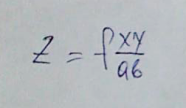 Z = f xy/ab